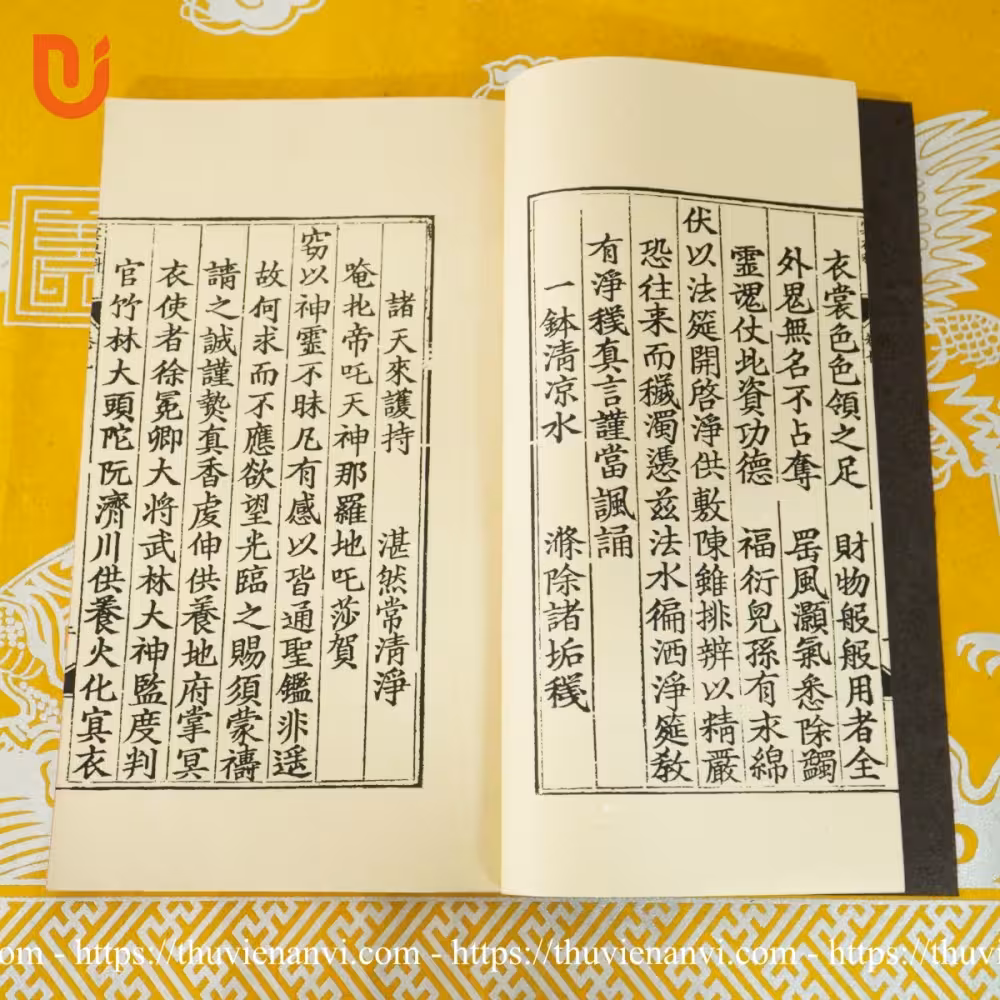 衣裳色色領之足 財物般般用者全
外鬼無名不占奪 罡風灝氣悉除蠲
靈魂仗此資功德 福衍兒孫有求綿
伏以法筵開啓淨供敷陳雖排辨以精嚴
恐往来而穢濁憑茲法水徧洒淨筵教
有淨穢真言謹當諷誦
一鉢清凉水 滌除諸垢穢
諸天來護持 湛然常清淨
唵扎帝吒天神那羅地吒莎賀
窃以神靈不昧凡有感以皆通聖鑑非遥
故何求而不應欲望光臨之賜須蒙禱
請之誠謹爇真香虔伸供養地府掌冥
衣使者徐冕卿大将武林大神監度判
官竹林大頭陀阮濟川供養火化冥衣
om - https://thuvienanvi.com - https://thuvienanvi.com - https://thuv